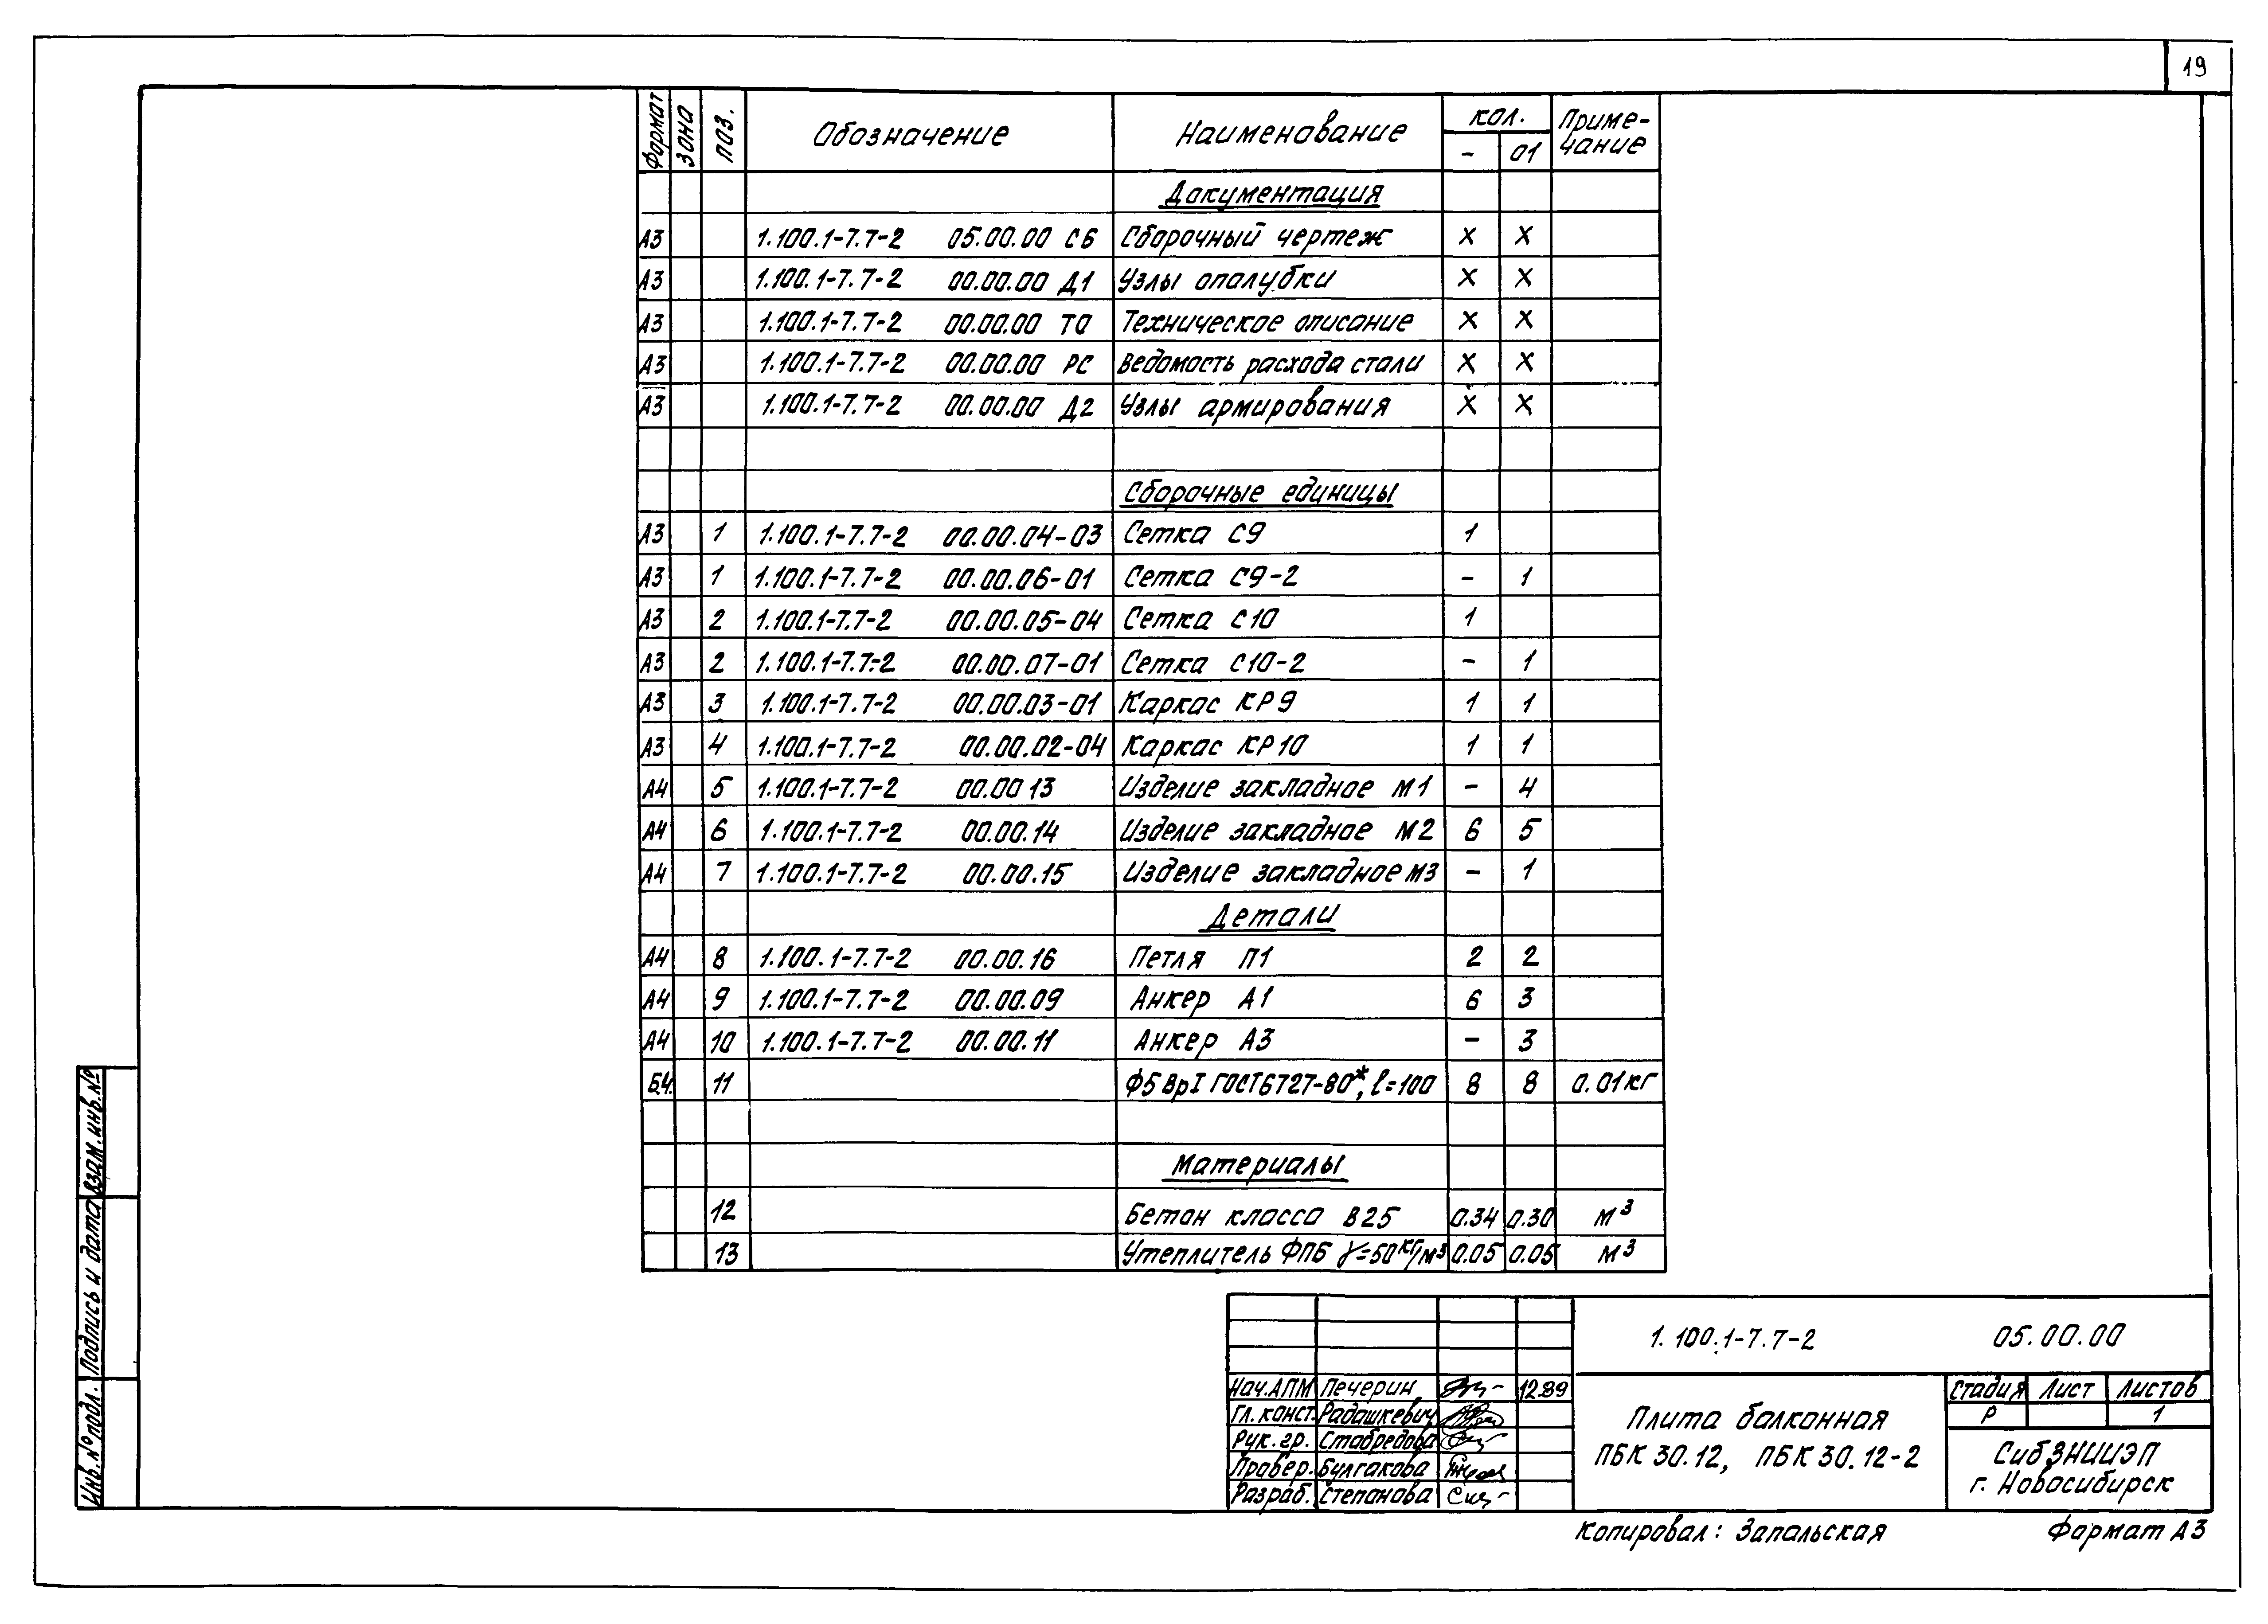 19
Формат Зона Поз. Обозначение Наименование Кол. Приме-
- 01 чание
Документация
А3 1.100.1-7.7-2 05.00.00 СБ Сборочный чертеж X X
А3 1.100.1-7.7-2 00.00.00 Д1 Узлы опалубки X X
А3 1.100.1-7.7-2 00.00.00 ТО Техническое описание X X
А3 1.100.1-7.7-2 00.00.00 РС Ведомость расхода стали X X
А3 1.100.1-7.7-2 00.00.00 Д2 Узлы армирования X X
Сборочные единицы
А3 1 1.100.1-7.7-2 00.00.04-03 Сетка С9 1
А3 1 1.100.1-7.7-2 00.00.06-01 Сетка С9-2 - 1
А3 2 1.100.1-7.7-2 00.00.05-04 Сетка С10 1
А3 2 1.100.1-7.7-2 00.00.07-01 Сетка С10-2 - 1
А3 3 1.100.1-7.7-2 00.00.03-01 Каркас КР9 1 1
А3 4 1.100.1-7.7-2 00.00.02-04 Каркас КР10 1 1
А4 5 1.100.1-7.7-2 00.00 13 Изделие закладное М1 - 4
А4 6 1.100.1-7.7-2 00.00.14 Изделие закладное М2 6 5
А4 7 1.100.1-7.7-2 00.00.15 Изделие закладное М3 - 1
Детали
А4 8 1.100.1-7.7-2 00.00.16 Петля П1 2 2
А4 9 1.100.1-7.7-2 00.00.09 Анкер А1 6 3
А4 10 1.100.1-7.7-2 00.00.11 Анкер А3 - 3
Б4. 11 Ф5 ВрI ГОСТ 6727-80*, ℓ=100 8 8 0.01кг
Материалы
12 Бетон класса В25 0.34 0.30 м³
13 Утеплитель ФПБ γ=50 кг/м³ 0.05 0.05 м³
1.100.1-7.7-2 05.00.00
Нач.АПМ Печерин 12.89
Гл. конст. Радашкевич
Рук. гр. Стабредова
Провер. Булгакова
Разраб. Степанова
Плита балконная
ПБК 30.12, ПБК 30.12-2
Стадия Лист Листов
Р 1
СибЗНИИЭП
г. Новосибирск
Копировал: Запальская Формат А3
Инв. № подл. Подпись и дата Взам. инв. №